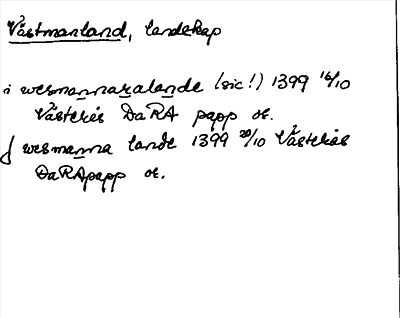 Västmanland, landskap
i wesmannaralande (sic!) 1399 16/10
Västerås DaRA papp or.
j wesmanna lande 1399 20/10 Västerås
DaRApapp or.